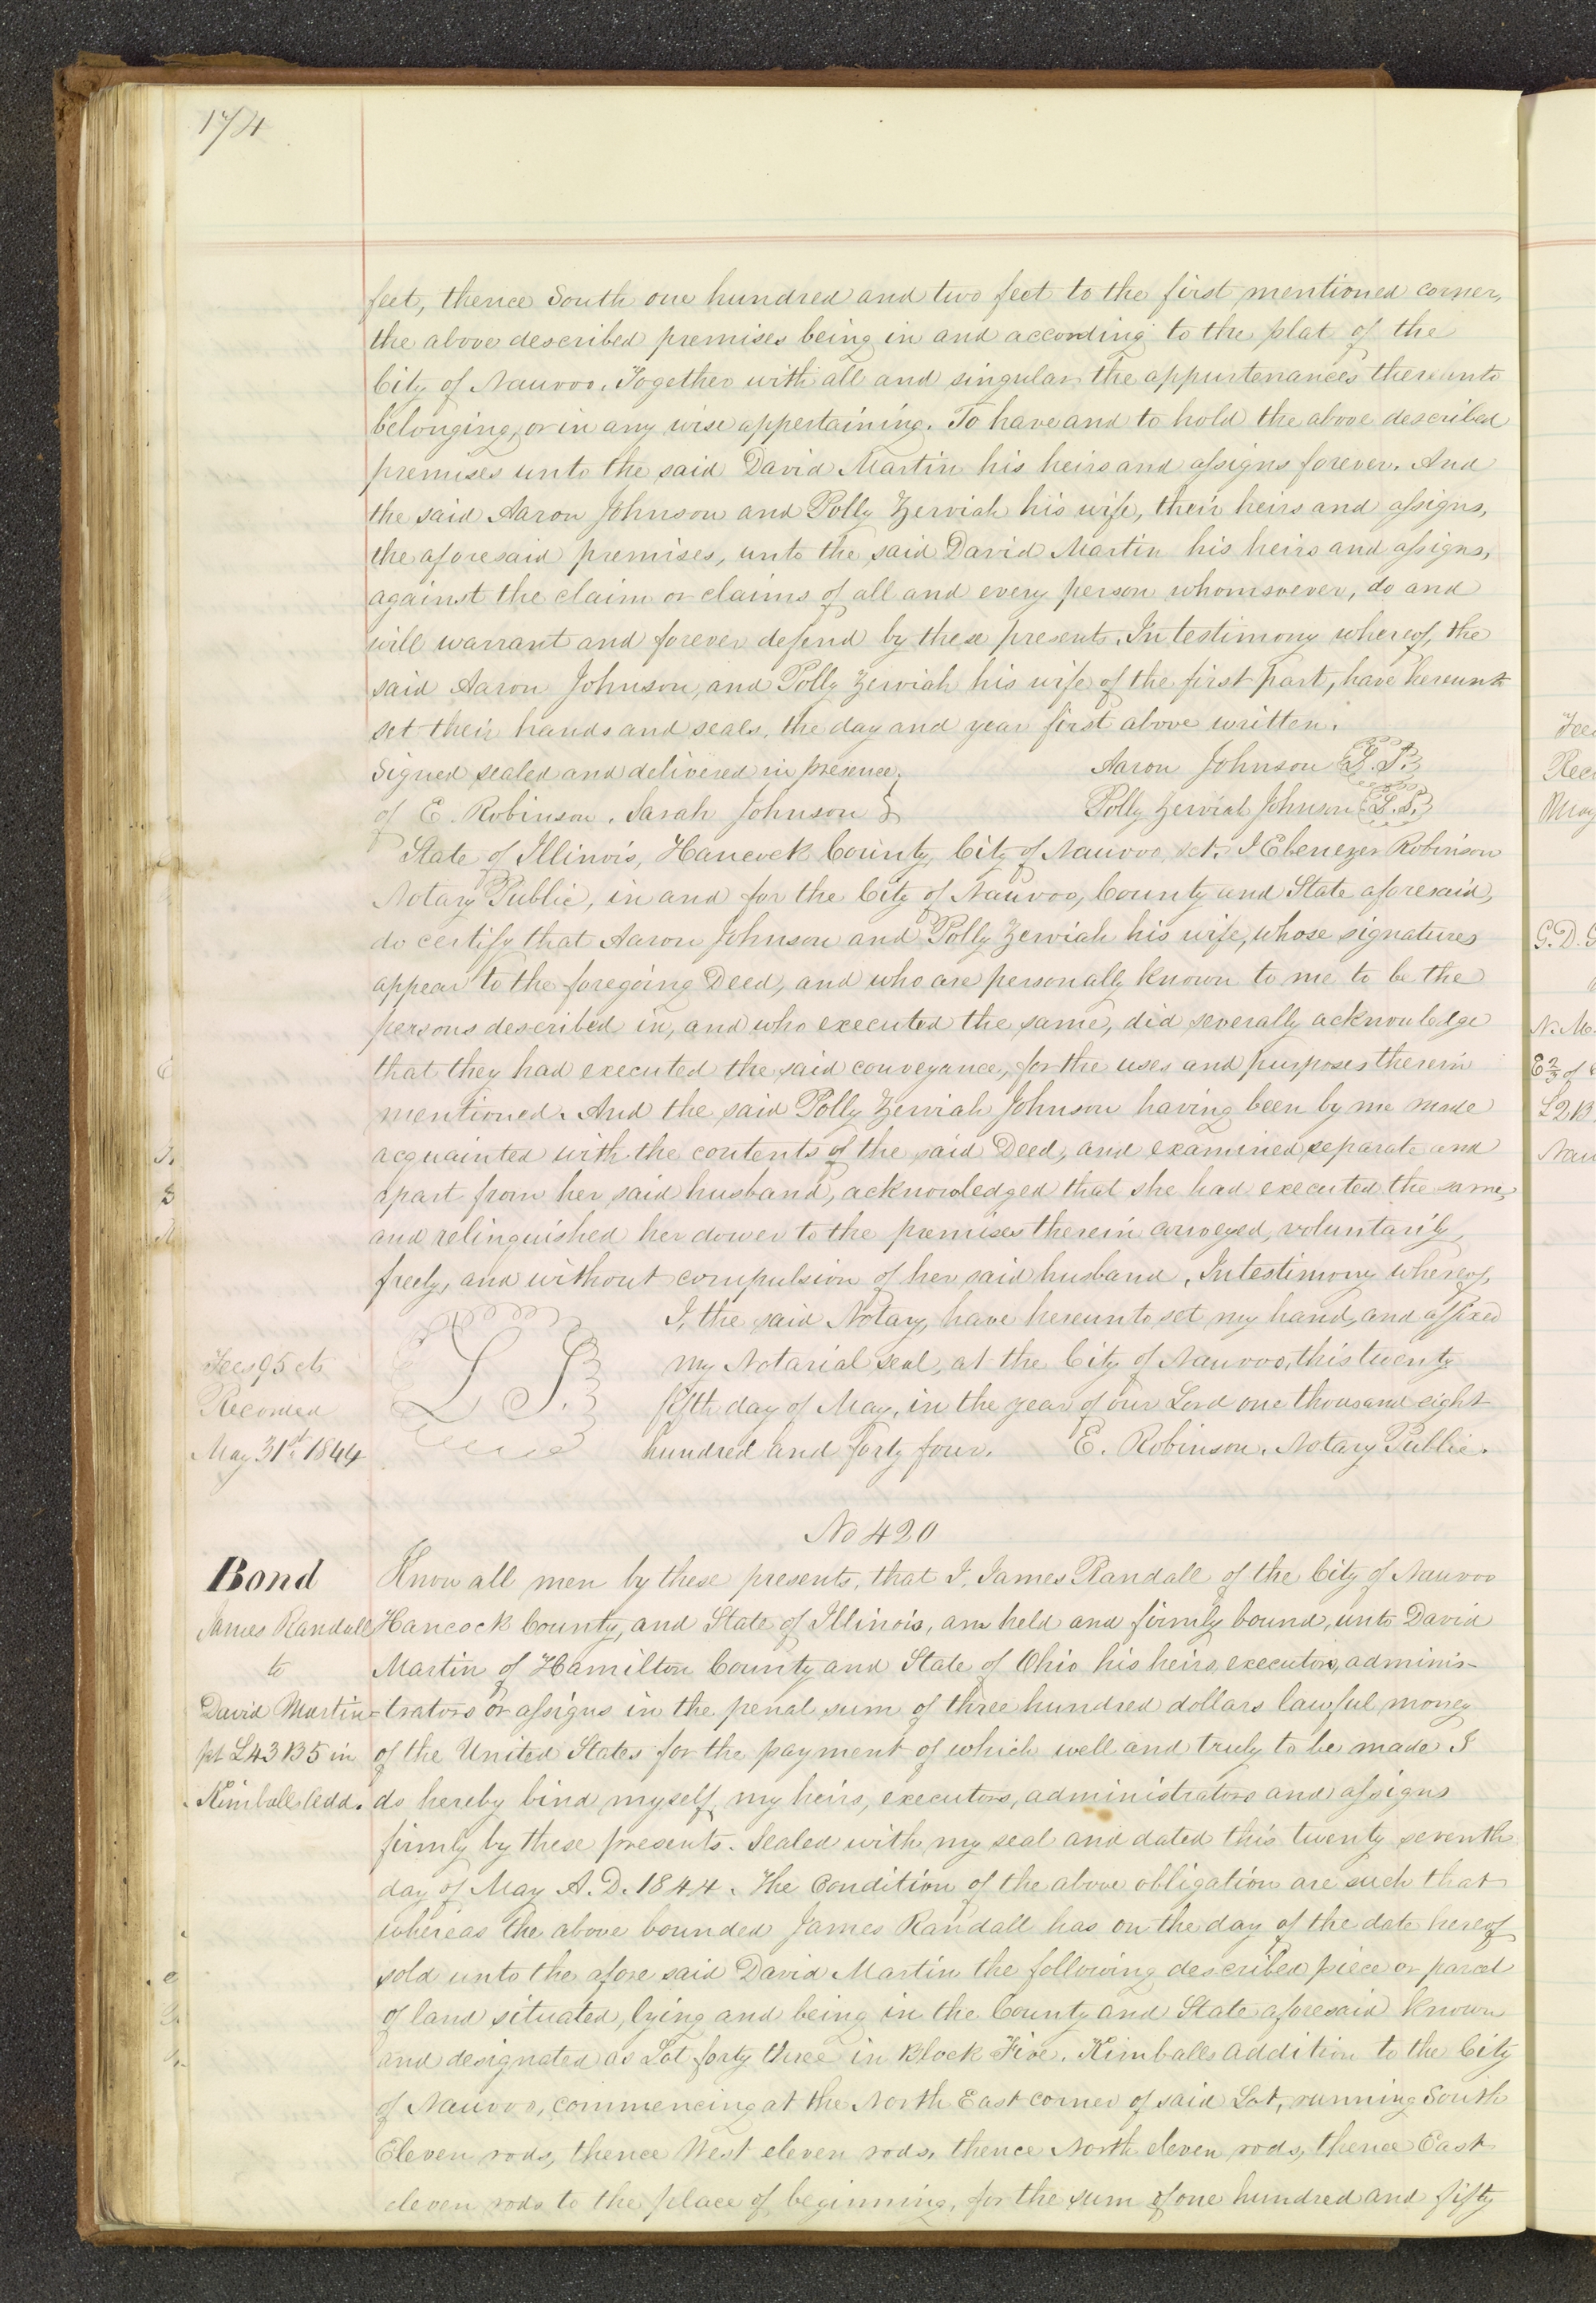 174
feet, thence South one hundred and two feet to the first mentioned corner,
the above described premises being in and according to the plat of the
City of Nauvoo. Together with all and singular the appurtenances thereunto
belonging, or in any wise appertaining. To have and to hold the above described
premises unto the said David Martin his heirs and assigns forever. And
the said Aaron Johnson and Polly Zerviah his wife, their heirs and assigns,
the aforesaid premises, unto the said David Martin his heirs and assigns,
against the claim or claims of all and every person whomsoever, do and
will warrant and forever defend by these presents. In testimony whereof, the
said Aaron Johnson, and Polly Zerviah his wife of the first part, have hereunto
set their hands and seals, the day and year first above written.
Signed sealed and delivered in presence } Aaron Johnson L.S.
of E. Robinson. Sarah Johnson } Polly Zerviah Johnson L.S.
State of Illinois, Hancock County, City of Nauvoo, sct. I Ebenezer Robinson
Notary Public, in and for the City of Nauvoo, County and State aforesaid,
do certify that Aaron Johnson and Polly Zerviah his wife, whose signatures
appear to the foregoing Deed, and who are personally known to me to be the
persons described in, and who executed the same, did severally acknowledge
that they had executed the said conveyance, for the uses and purposes therein
mentioned. And the said Polly Zerviah Johnson having been by me made
acquainted with the contents of the said Deed, and examined separate and
apart from her said husband, acknowledged that she had executed the same,
and relinquished her dower to the premises therein conveyed, voluntarily,
freely, and without compulsion of her said husband. In testimony whereof,
I, the said Notary, have hereunto set my hand, and affixed
Fees 95 cts L S. my Notarial seal, at the City of Nauvoo, this twenty
Recorded fifth day of May, in the year of our Lord one thousand eight
May 31st 1844 hundred and forty four. E. Robinson. Notary Public.
No 420
Bond Know all men by these presents, that I, James Randall of the City of Nauvoo
James Randall Hancock County, and State of Illinois, am held and firmly bound, unto David
to Martin of Hamilton County and State of Ohio his heirs, executors, adminis-
David Martin -trators or assigns in the penal sum of three hundred dollars lawful money
pt L43 B5 in of the United States for the payment of which well and truly to be made I
Kimballs Add. do hereby bind myself, my heirs, executors, administrators and assigns
firmly by these presents. Sealed with my seal and dated this twenty seventh
day of May A.D. 1844. The Condition of the above obligation are such that
whereas the above bounded James Randall has on the day of the date hereof
sold unto the afore said David Martin the following described piece or parcel
of land situated, lying and being in the County and State aforesaid known
and designated as Lot forty three in Block Five. Kimballs addition to the City
of Nauvoo, commencing at the North East corner of said Lot, running South
Eleven rods, thence West eleven rods, thence North eleven rods, thence East
eleven rods to the place of beginning, for the sum of one hundred and fifty